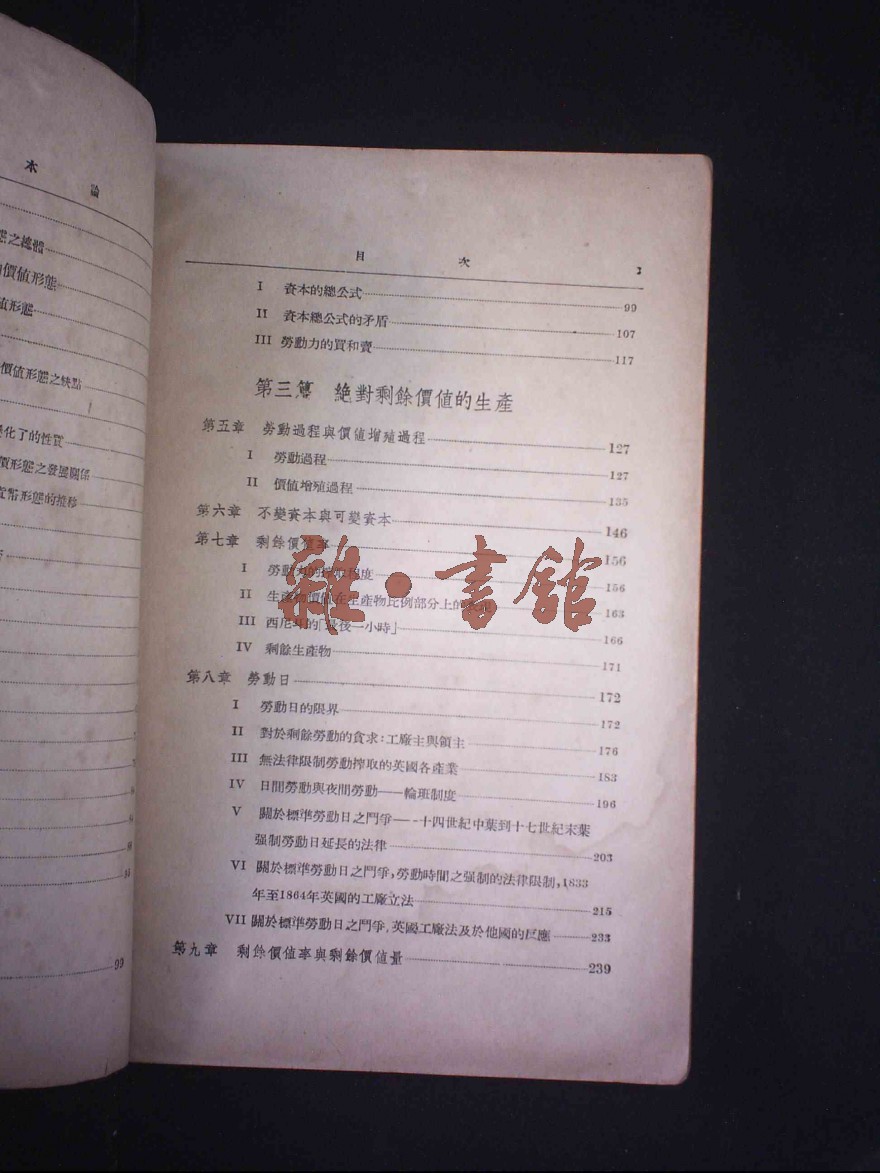 本 論
態之總體
價值形態
值形態
價值形態之缺點
化了的性質
價形態之發展關係
貨幣形態的推移
99
目 次 3
I 資本的總公式 99
II 資本總公式的矛盾 107
III 勞動力的買和賣 117
第三篇 絕對剩餘價值的生產
第五章 勞動過程與價值增殖過程 127
I 勞動過程 127
II 價值增殖過程 135
第六章 不變資本與可變資本 146
第七章 剩餘價值率 156
I 勞動力的 程度 156
II 生產物價值在生產物比例部分上的 163
III 西尼耳的「最後一小時」 166
IV 剩餘生產物 171
第八章 勞動日 172
I 勞動日的限界 172
II 對於剩餘勞動的貪求:工廠主與領主 176
III 無法律限制勞動搾取的英國各產業 183
IV 日間勞動與夜間勞動——輪班制度 196
V 關於標準勞動日之鬥爭——十四世紀中葉到十七世紀末葉
强制勞動日延長的法律 203
VI 關於標準勞動日之鬥爭,勞動時間之强制的法律限制,1833
年至1864年英國的工廠立法 215
VII 關於標準勞動日之鬥爭,英國工廠法及於他國的反應 233
第九章 剩餘價值率與剩餘價值量 239
雜·書館